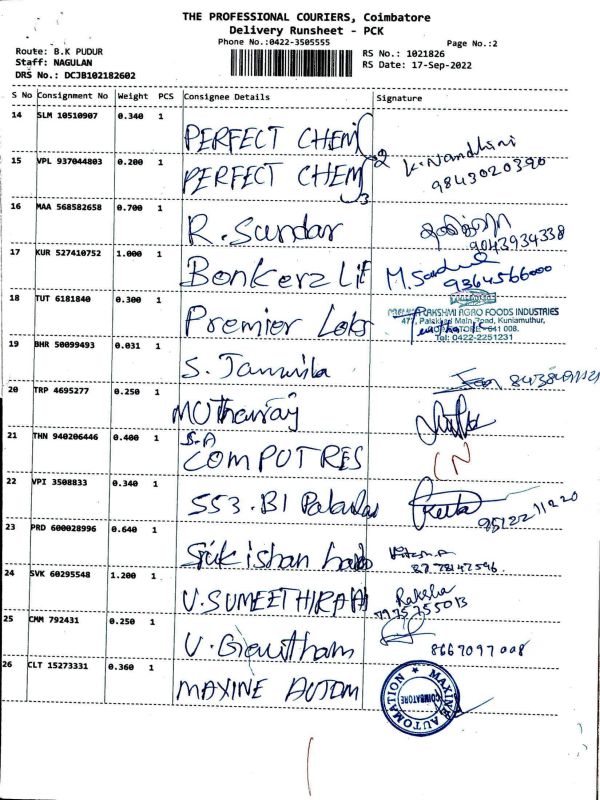 THE PROFESSIONAL COURIERS, Coimbatore
Delivery Runsheet - PCK
Phone No.:0422-3505555
Page No.:2
Route: B.K PUDUR
RS No.: 1021826
Staff: NAGULAN
RS Date: 17-Sep-2022
DRS No.: DCJB102182602
S No Consignment No Weight PCS Consignee Details Signature
14 SLM 10510907 0.340 1 PERFECT CHEM
15 VPL 937044803 0.200 1 PERFECT CHEM K. Nandhini
9843020390
16 MAA 568582658 0.700 1 R. Sundar
9043934338
17 KUR 527410752 1.000 1 Bonkerz
9364566000
18 TUT 6181840 0.300 1 Premier
LAKSHMI AGRO FOODS INDUSTRIES
Palakkad Main Road, Kuniamuthur,
COIMBATORE - 641 008.
Tel: 0422-2251231
19 BHR 50099493 0.031 1 S.
20 TRP 4695277 0.250 1
21 THN 940206446 0.400 1 S.A
COMPUTRES
22 VPI 3508833 0.340 1 553.B1
23 PRD 600028996 0.640 1
24 SVK 60295548 1.200 1 V.SUMEETHIRAA
7975755013
25 CMM 792431 0.250 1 V. Gowtham
8667097008
26 CLT 15273331 0.360 1 MAXINE AUTOM
MAXINE AUTOMATION
COIMBATORE